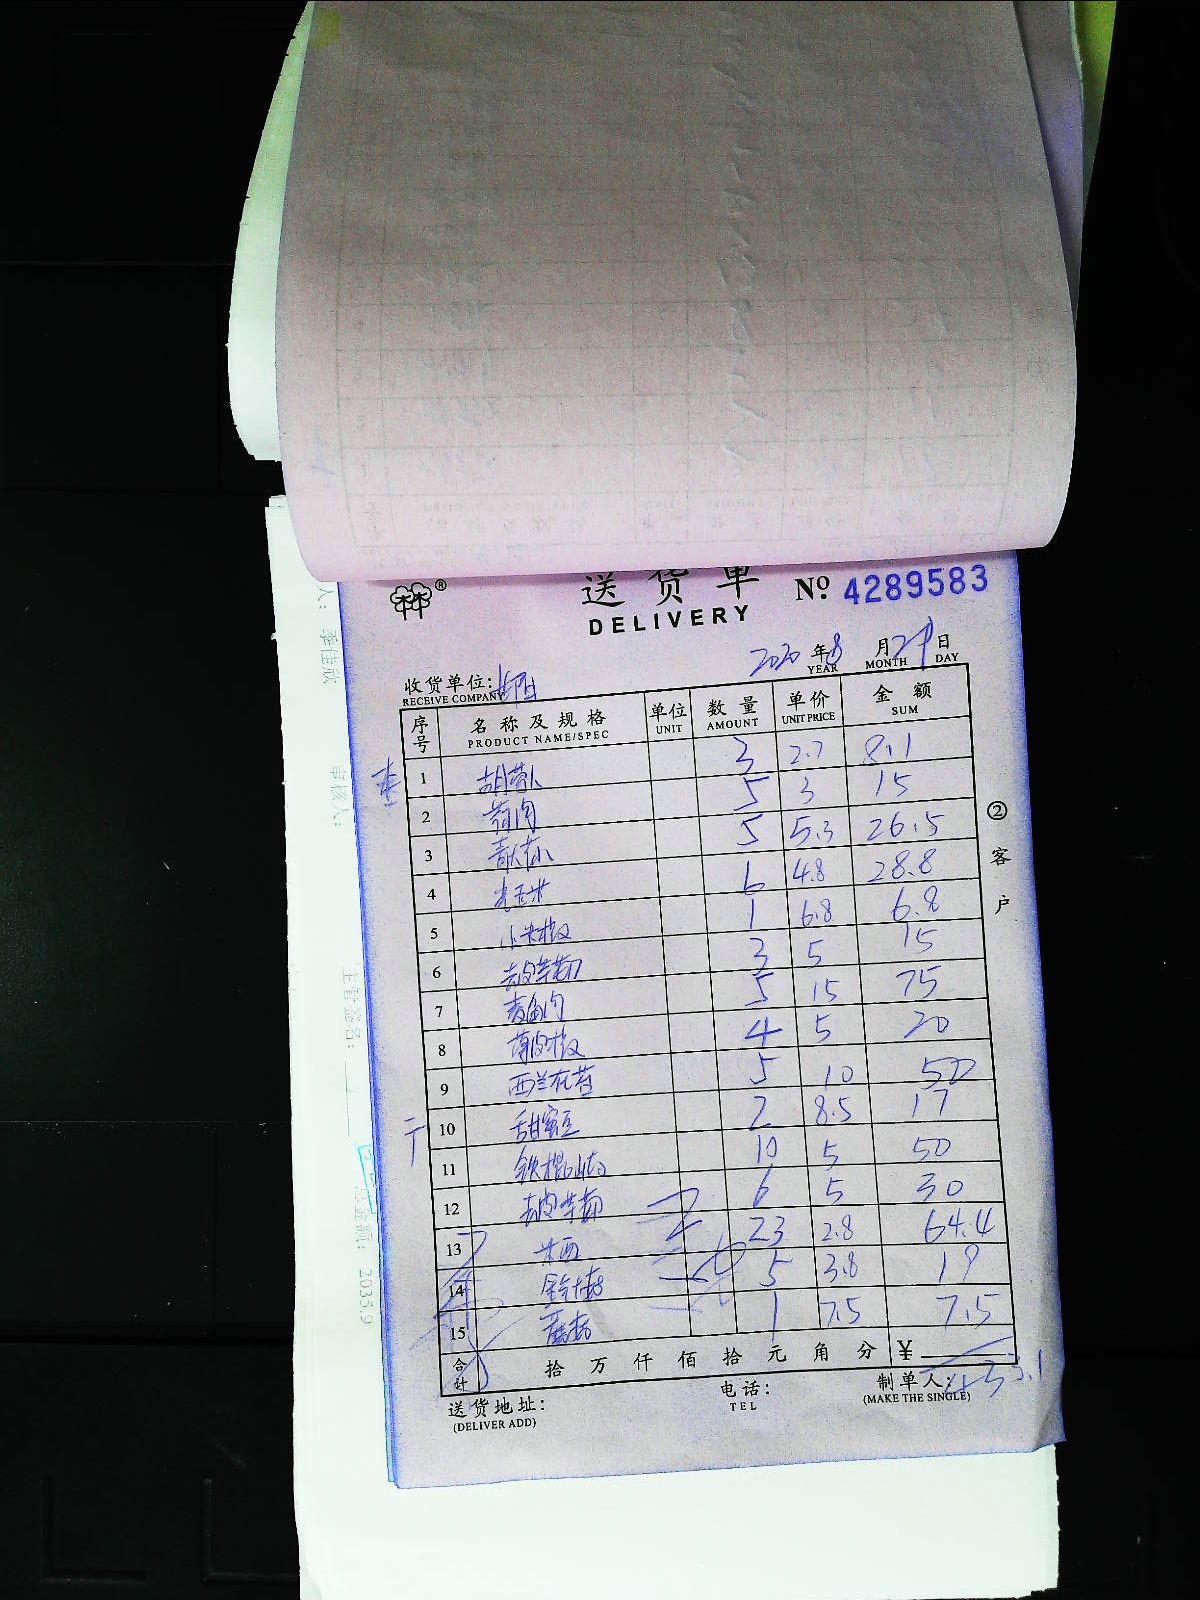 送货单 № 4289583
DELIVERY
2020 年 8 月 29 日
YEAR MONTH DAY
收货单位:
RECEIVE COMPANY
序号 名称及规格 单位 数量 单价 金额
PRODUCT NAME/SPEC UNIT AMOUNT UNIT PRICE SUM
1 胡萝卜 3 2.7 8.1
2 5 3 15
3 5 5.3 26.5
4 6 4.8 28.8
5 小米椒 1 6.8 6.8
6 去皮芋艿 3 5 15
7 5 15 75
8 薄皮椒 4 5 20
9 西兰花苔 5 10 50
10 甜蜜豆 2 8.5 17
11 铁棍山药 10 5 50
12 去皮芋艿 6 5 30
13 23 2.8 64.4
14 5 3.8 19
15 蘑菇 1 7.5 7.5
合计 拾 万 仟 佰 拾 元 角 分 ¥
433.1
送货地址: 电话: 制单人:
(DELIVER ADD) TEL (MAKE THE SINGLE)
② 客户
审核人:
主管签名:
总金额: 2035.9